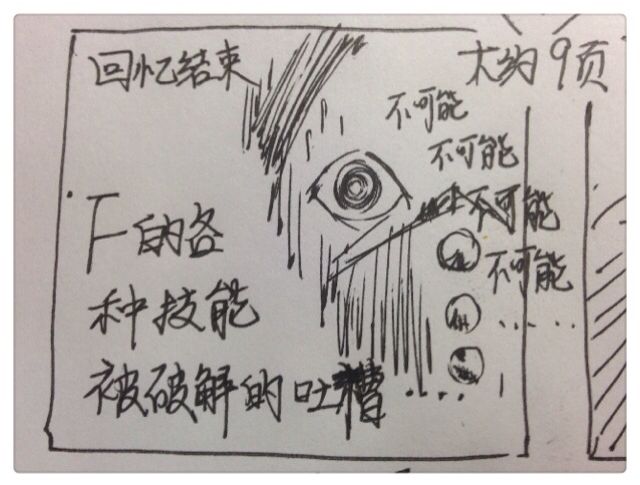 回忆结束
大约9页
不可能
不可能
不可能
不可能
F的各
种技能
被破解的吐槽……